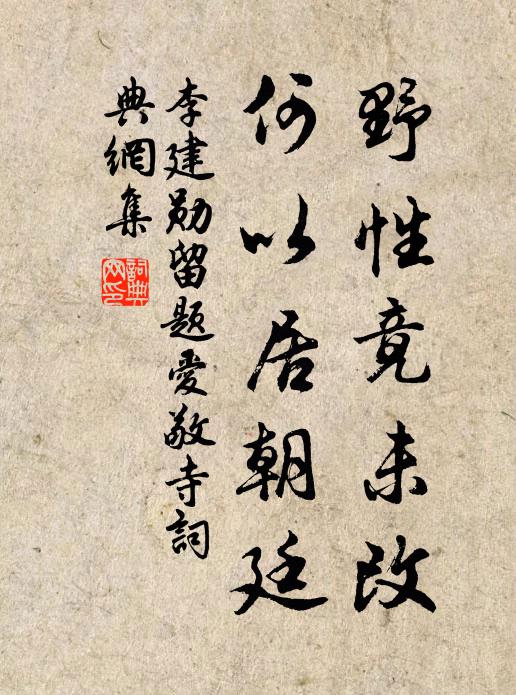 野性竟未改
何以居朝廷
李建勋留题愛敬寺詞
典網集
詞典网印